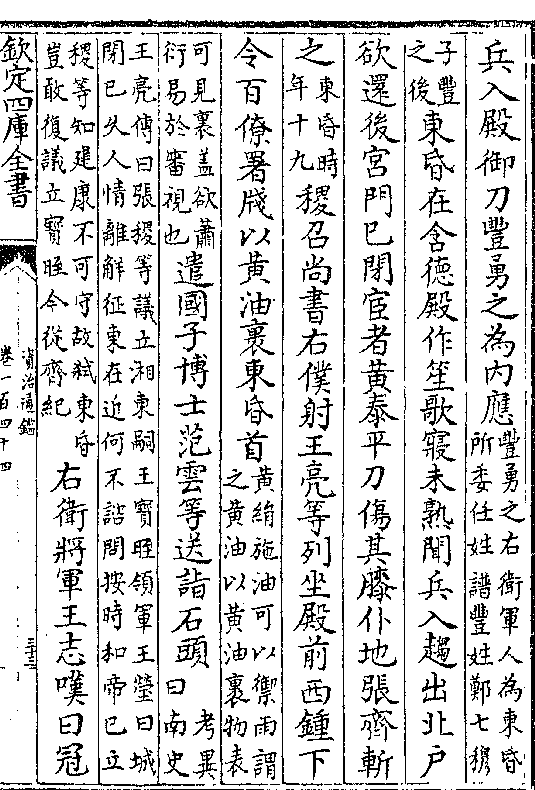 兵入殿御刀豐勇之為内應豐勇之右衛軍人為東昏所委任姓譜豐姓鄭七穆
子豐之後東昏在含德殿作笙歌寢未熟聞兵入趨出北户
欲還後宫門已閉宦者黃泰平刀傷其膝仆地張齊斬
之東昏時年十九稷召尚書右僕射王亮等列坐殿前西鍾下
令百僚署牋以黃油裹東昏首黃絹施油可以禦雨謂之黃油以黃油裹物表
可見裏蓋欲蕭衍易於審視也遣國子博士范雲等送詣石頭考異曰南史
王亮傳曰張稷等議立湘東嗣王寶晊領軍王瑩曰城閉已久人情離解征東在近何不諮問按時和帝已立
稷等知建康不可守故弑東昏豈敢復議立寶晊今從齊紀右衛將軍王志嘆曰冠
欽定四庫全書
資治通鑑
卷一百四十四
三十三